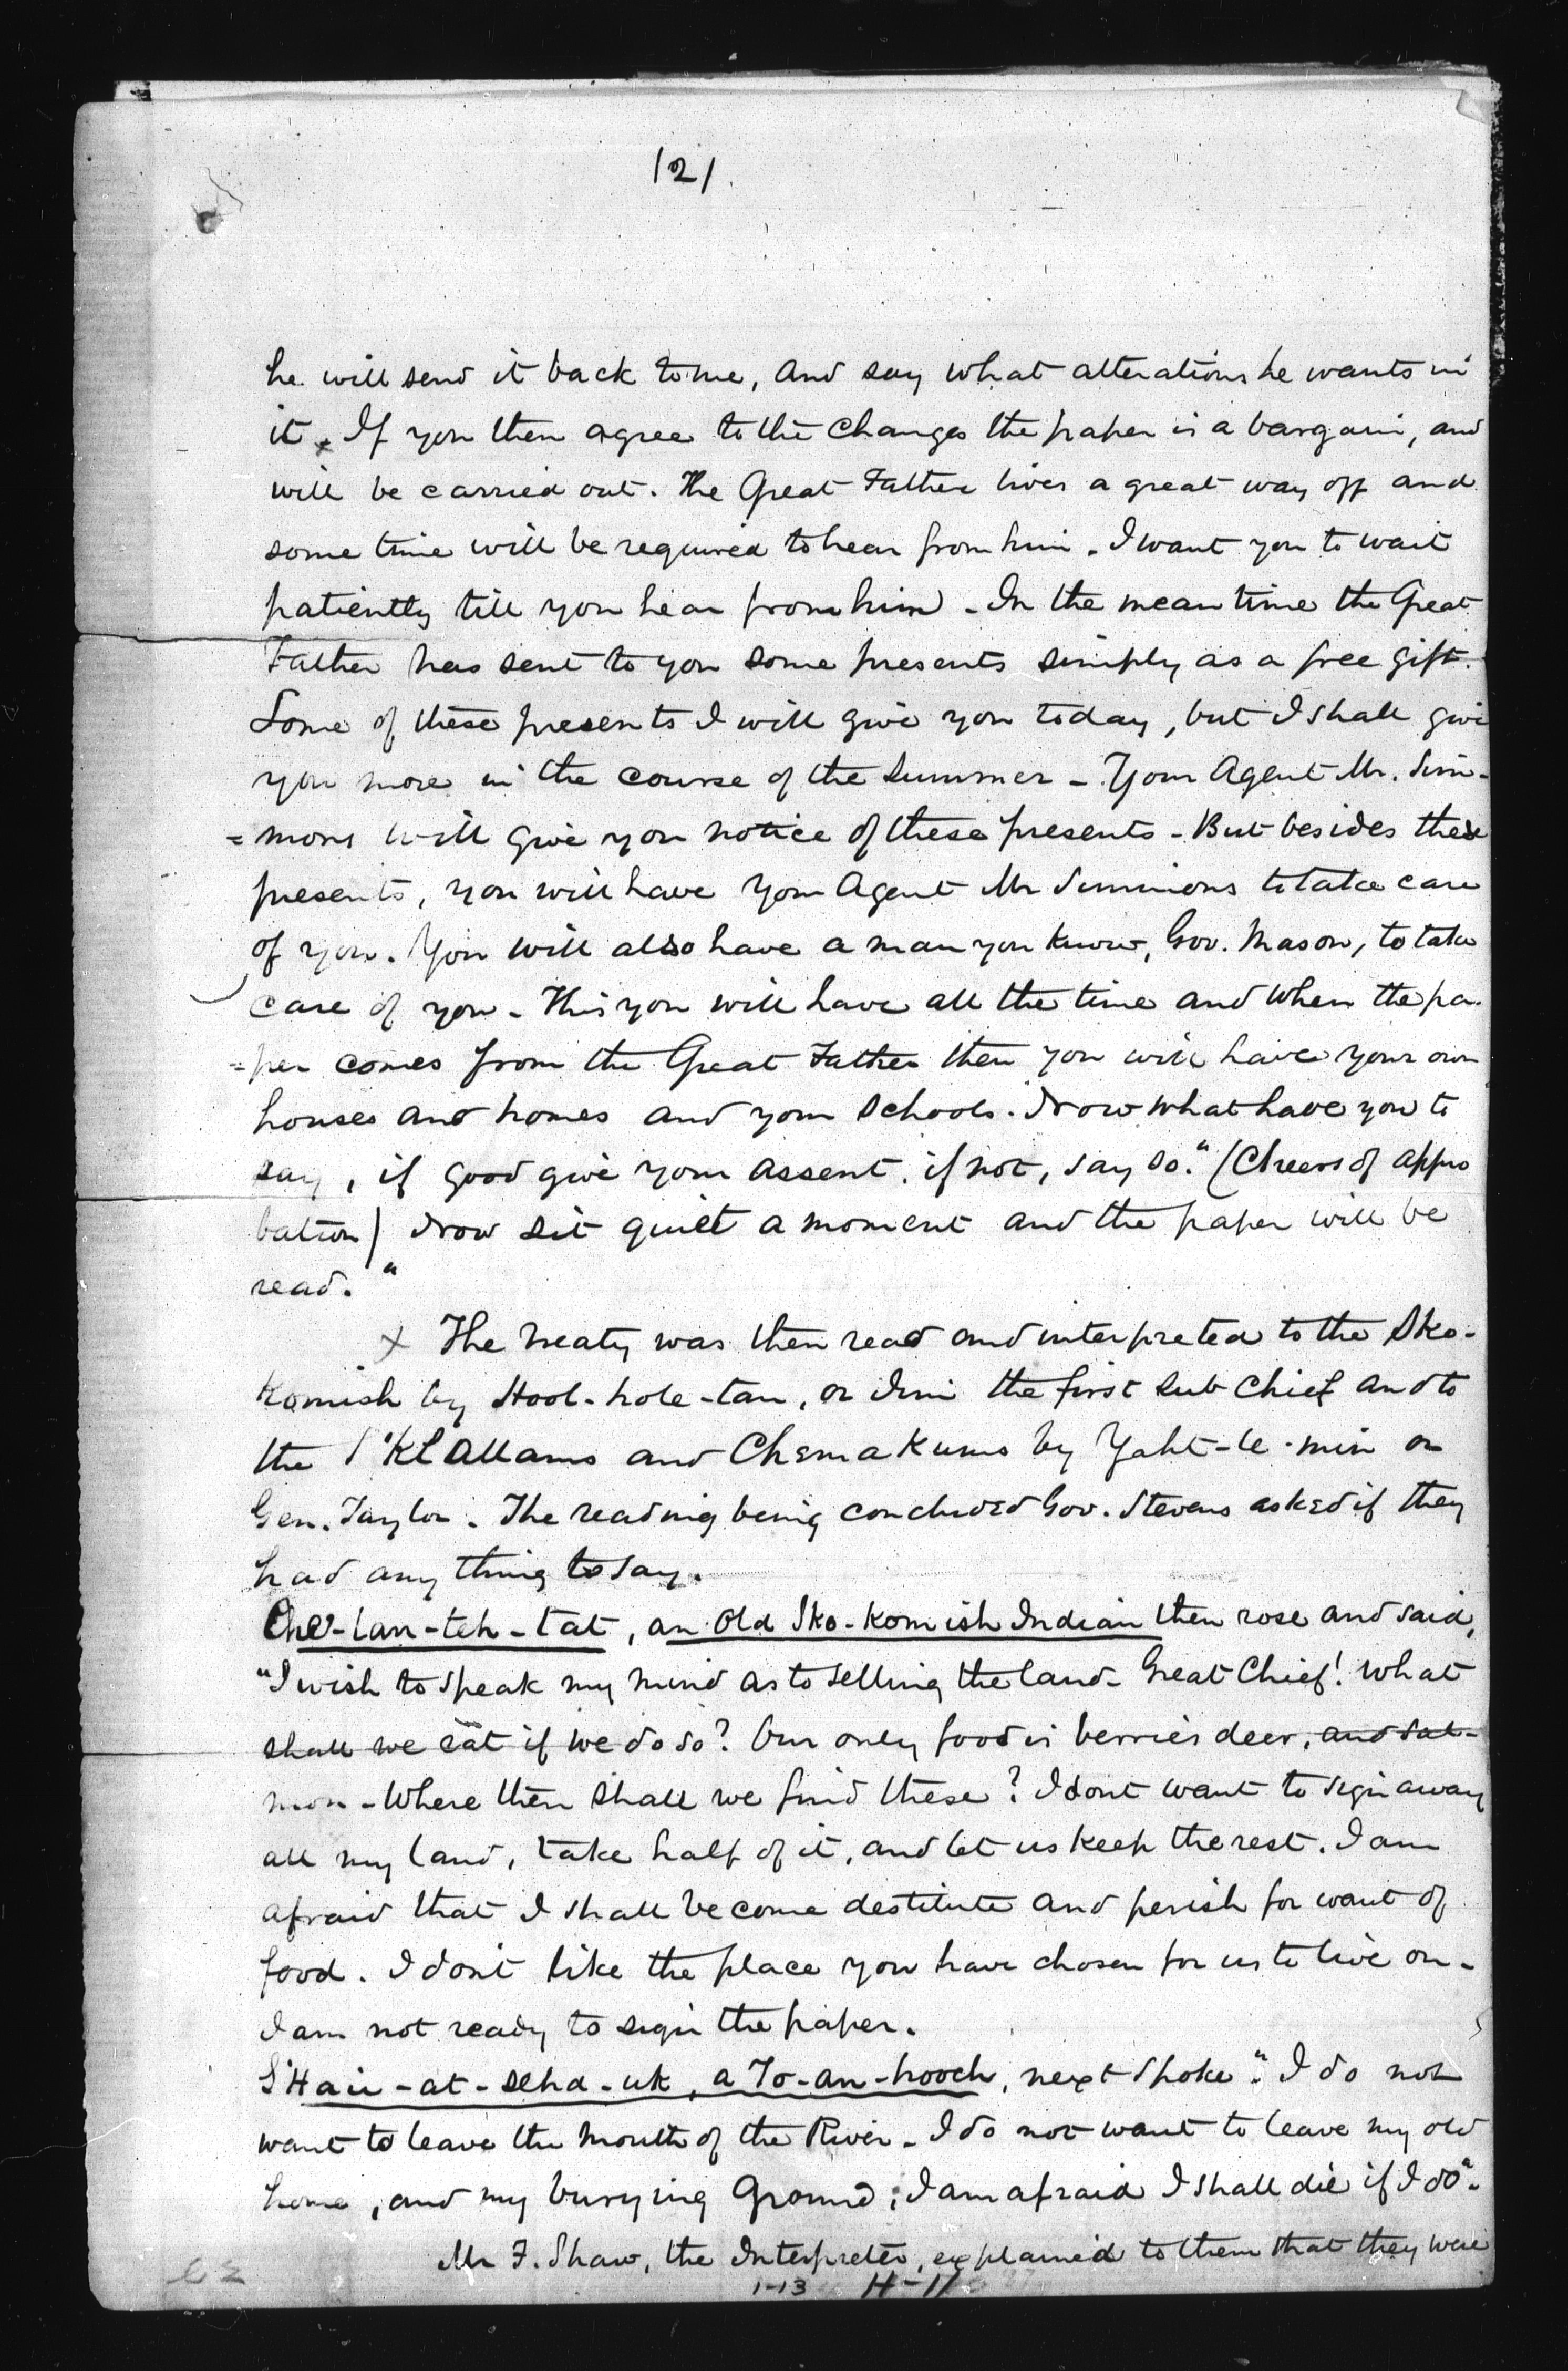 121.
he will send it back to me, and say what alterations he wants in
it x If you then agree to the changes the paper is a bargain, and
will be carried out. The Great Father lives a great way off and
some time will be required to hear from him. I want you to wait
patiently till you hear from him - In the mean time the Great
Father has sent to you some presents simply as a free gift.
Some of these presents I will give you today, but I shall give
you more in the course of the Summer - Your Agent Mr. Sim-
=mons will give you notice of these presents - But besides these
presents, you will have your Agent Mr Simmons to take care
of you. You will also have a man you know, Gov. Mason, to take
care of you - This you will have all the time and when the pa-
=per comes from the Great Father then you will have your own
houses and homes and your schools. Now what have you to
say, if good give your assent. if not, say so." (Cheers of appro
bation) Now sit quiet a moment and the paper will be
read."
x The treaty was then read and interpreted to the Sko-
komish by Hool-hole-tan, or Jim the first Sub Chief and to
the S'Klallams and Chemakums by Yaht-le-min or
Gen. Taylor. The reading being concluded Gov. Stevens asked if they
had any thing to say.
Che-lan-teh-tat, an old Sko-komish Indian then rose and said,
"I wish to speak my mind as to selling the land - Great Chief! What
shall we eat if we do so? Our only food is berries deer, and sal-
mon - Where then shall we find these? I dont want to sign away
all my land, take half of it, and let us keep the rest. I am
afraid that I shall become destitute and perish for want of
food. I don't like the place you have chosen for us to live on -
I am not ready to sign the paper.
S'Hau-at-seha-uk, a To-an-hooch, next spoke." I do not
want to leave the mouth of the River - I do not want to leave my old
home, and my burying ground; I am afraid I shall die if I do".
Mr F. Shaw, the Interpreter, explained to them that they were
1-13 H-11